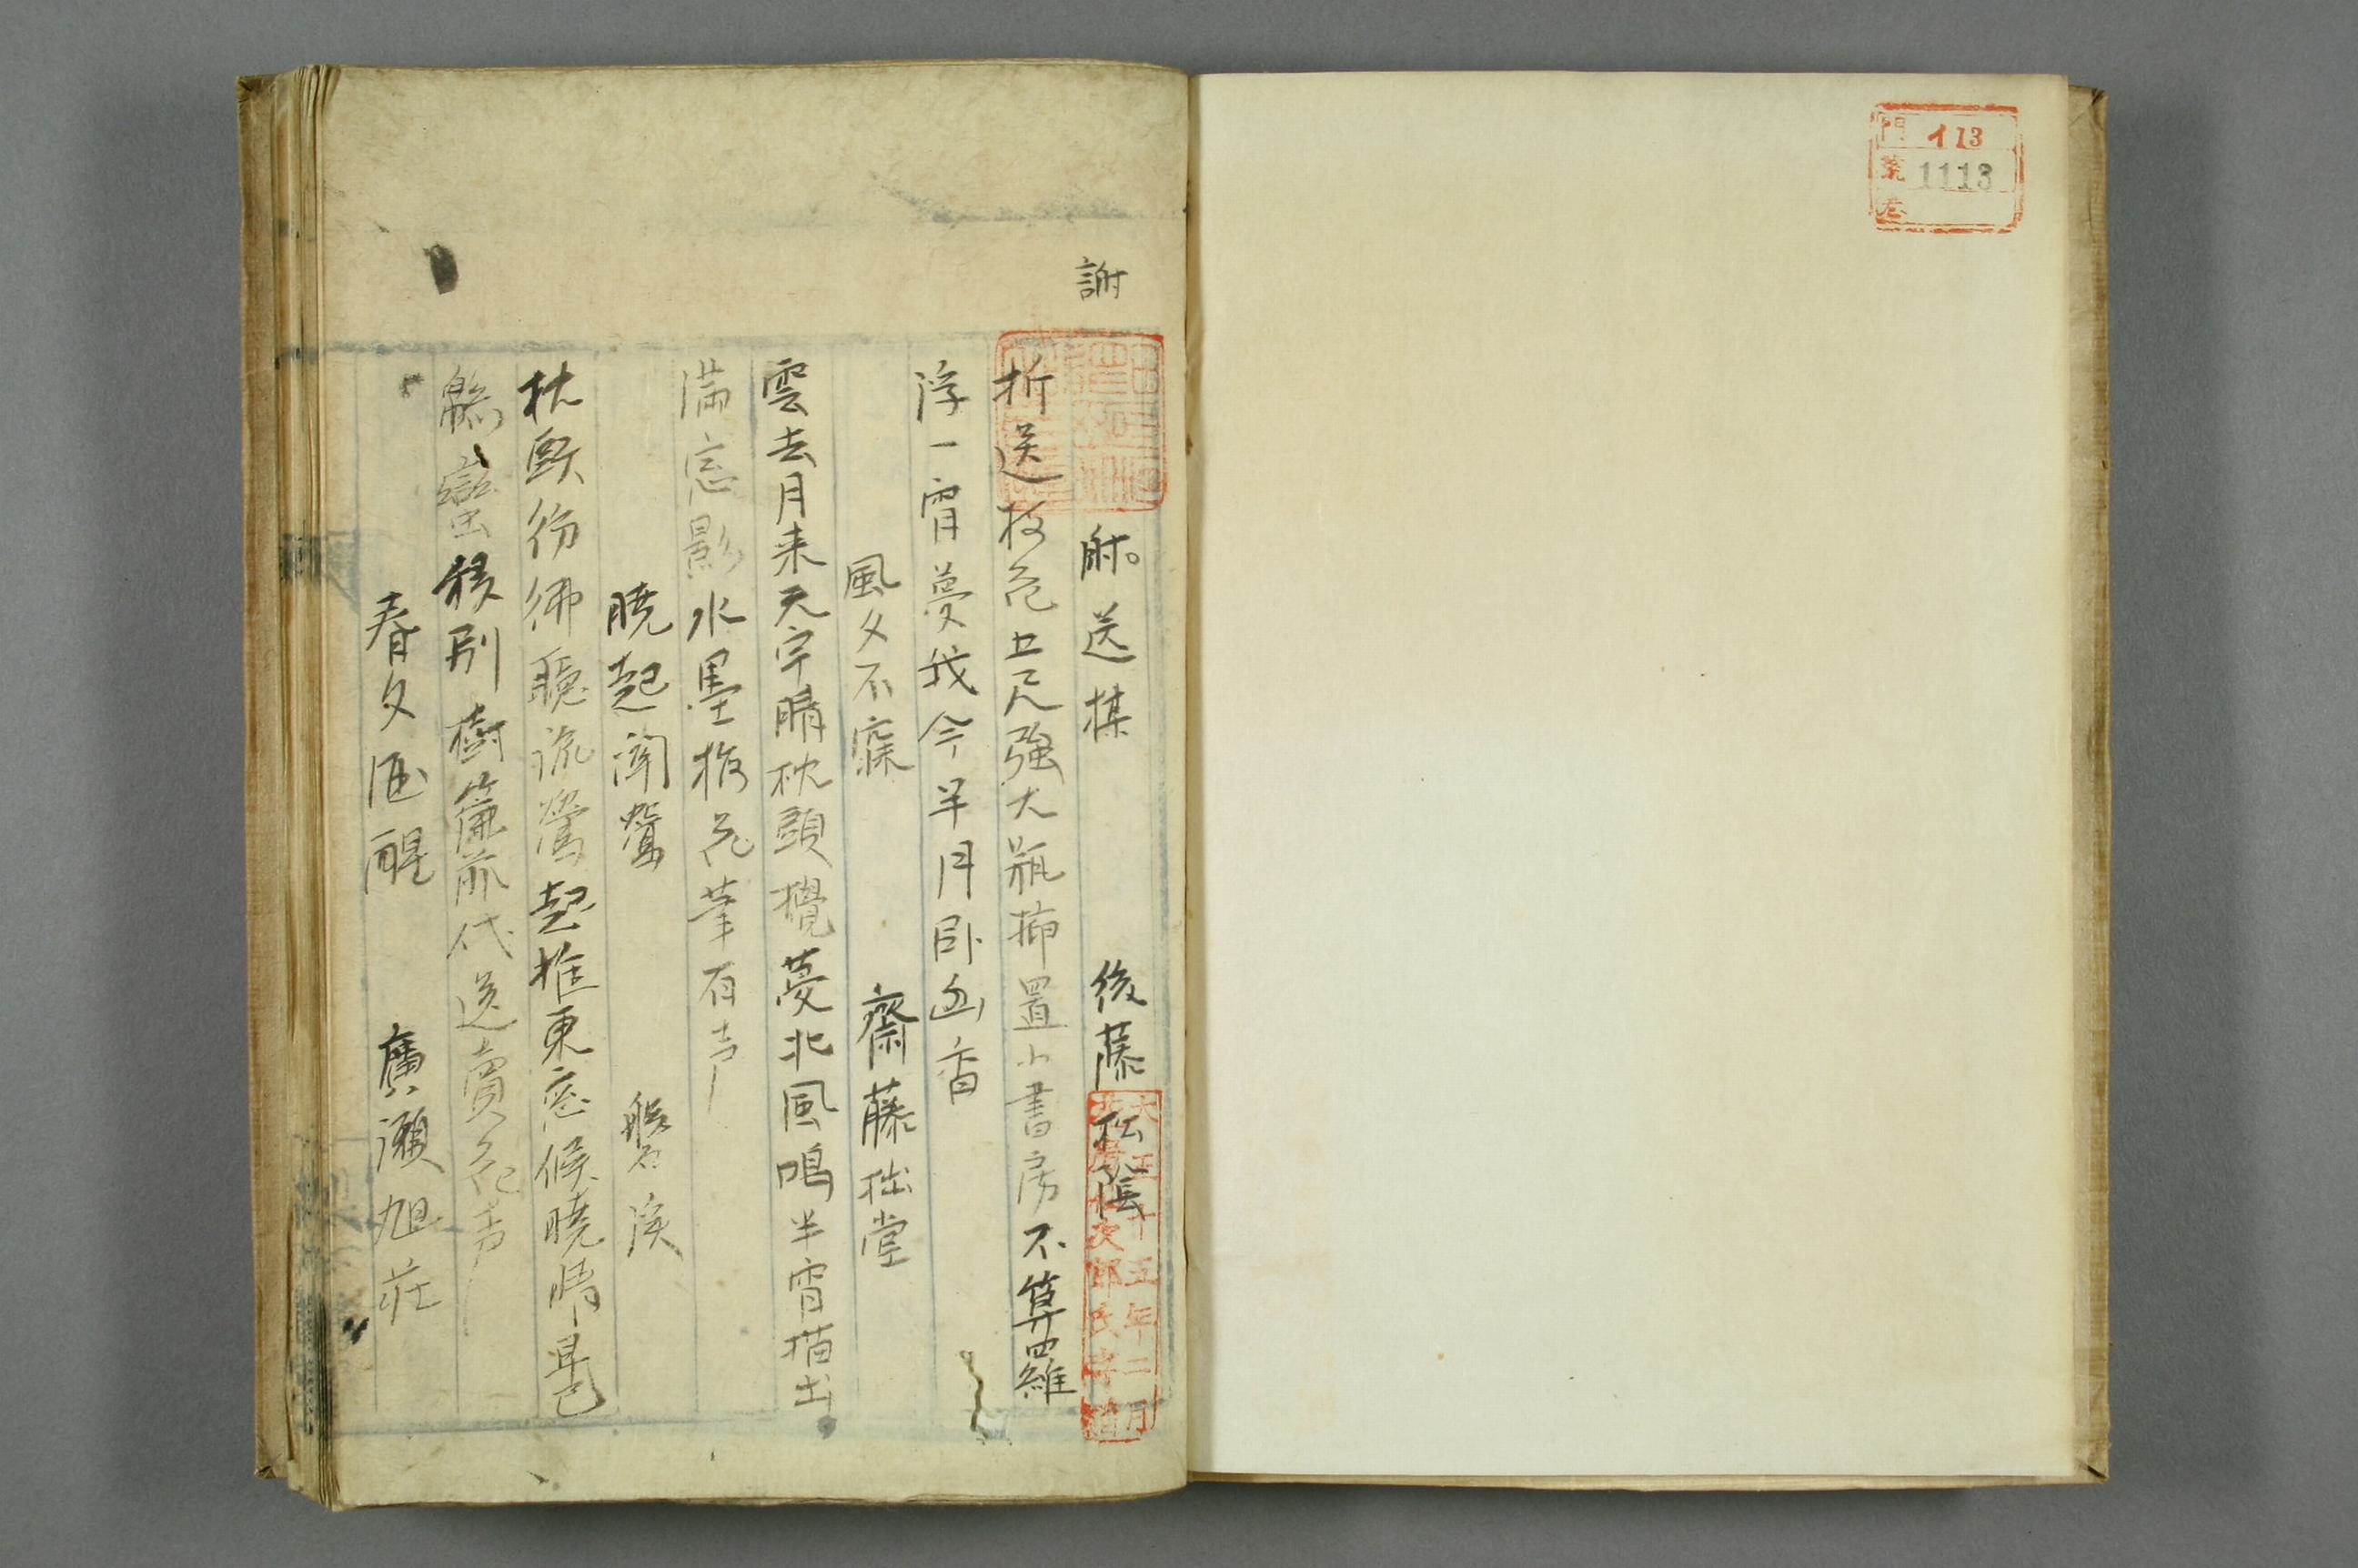 門 イ13
號 1113
卷
謝
謝。送楳 後藤松陰
大正十五年二月
折送枝花五尺強大瓶揷置小書房不算四維
浮一宵夢我今半月臥幽香
風夕不寐 齋藤拙堂
雲去月来天宇晴枕頭攪夢北風鳴半宵描出
満窓影水墨梅花筆有声
暁起聞鴬 磐渓
枕欹彷彿聴流鶯起推東窓候暁晴早已
緜蠻移別樹簾前代送賣花声
春夕酒醒 廣瀬旭荘